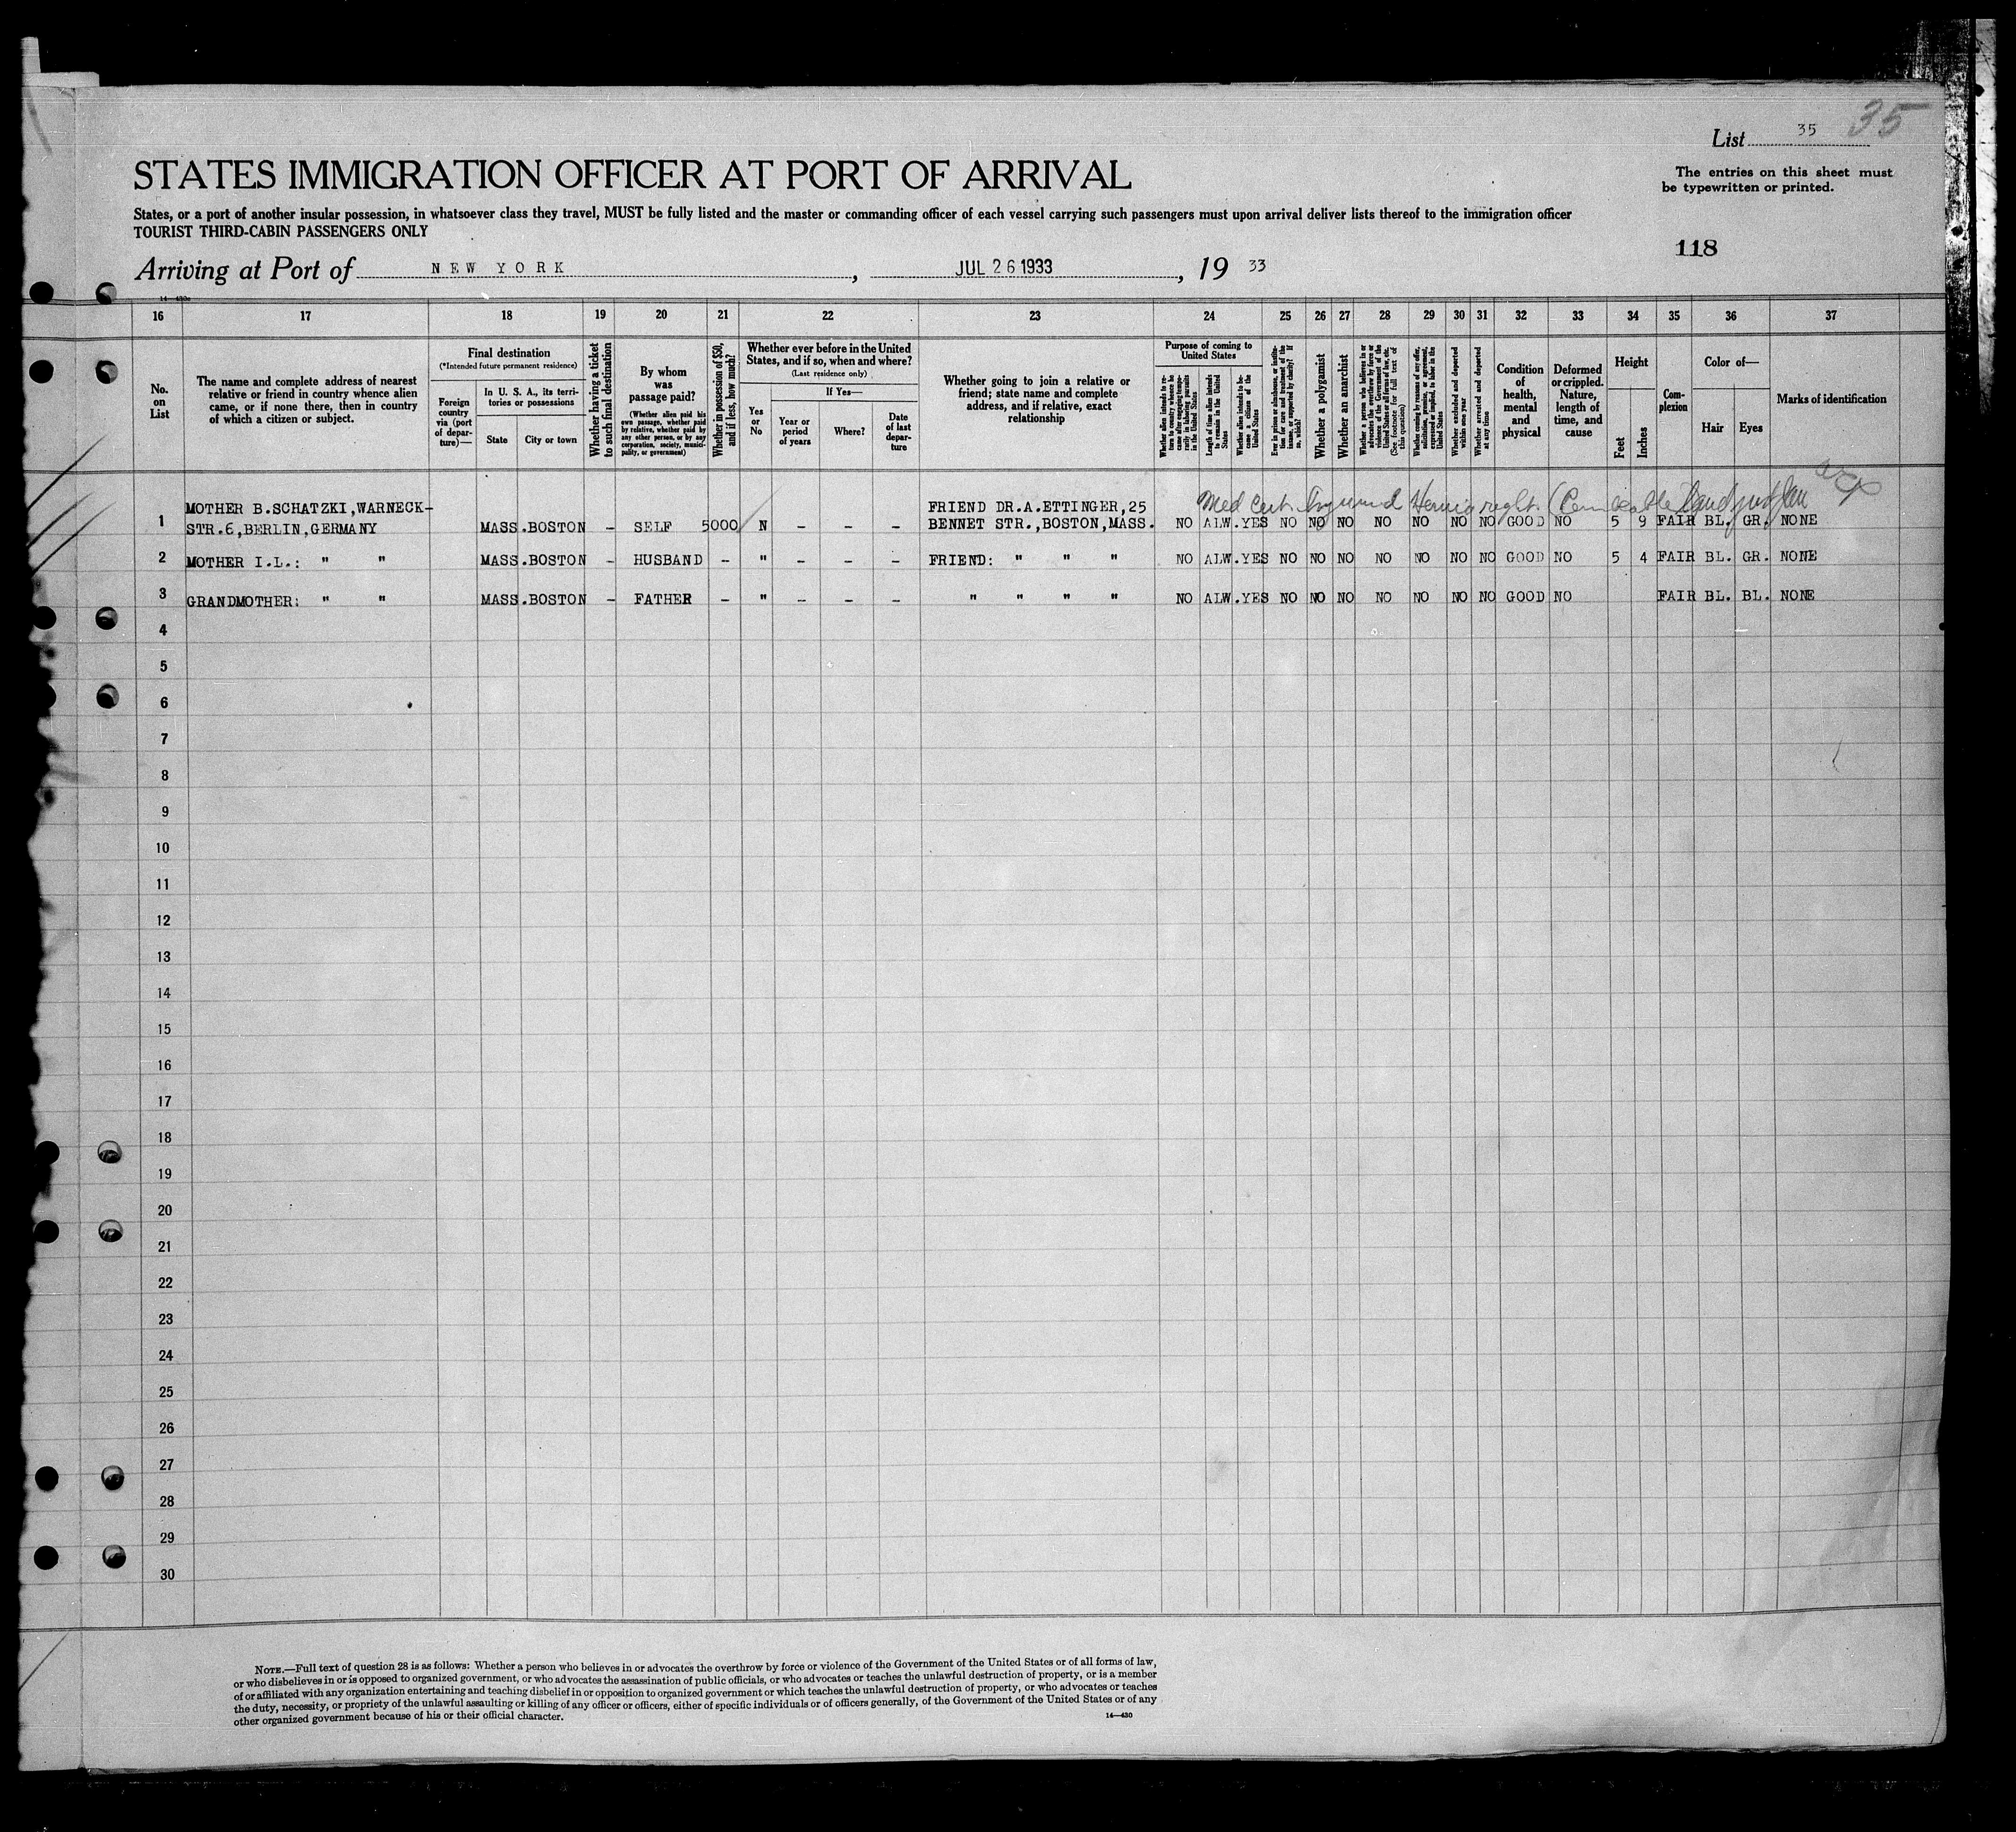 List 35 35
STATES IMMIGRATION OFFICER AT PORT OF ARRIVAL
The entries on this sheet must
be typewritten or printed.
States, or a port of another insular possession, in whatsoever class they travel, MUST be fully listed and the master or commanding officer of each vessel carrying such passengers must upon arrival deliver lists thereof to the immigration officer
TOURIST THIRD-CABIN PASSENGERS ONLY
118
Arriving at Port of NEW YORK, JUL 26 1933, 19 33
14—430c
16 17 18 19 20 21 22 23 24 25 26 27 28 29 30 31 32 33 34 35 36 37
No.
on
List
The name and complete address of nearest
relative or friend in country whence alien
came, or if none there, then in country
of which a citizen or subject.
Final destination
(*Intended future permanent residence)
Foreign
country
via (port
of depar-
ture)—
In U. S. A., its terri-
tories or possessions
State City or town
Whether having a ticket
to such final destination
By whom
was
passage paid?
(Whether alien paid his
own passage, whether paid
by relative, whether paid by
any other person, or by any
corporation, society, munici-
pality, or government)
Whether in possession of $50,
and if less, how much?
Whether ever before in the United
States, and if so, when and where?
(Last residence only)
Yes
or
No
If Yes—
Year or
period
of years
Where?
Date
of last
depar-
ture
Whether going to join a relative or
friend; state name and complete
address, and if relative, exact
relationship
Purpose of coming to
United States
Whether alien intends to re-
turn to country whence he
came after engaging tempo-
rarily in laboring pursuits
in the United States
Length of time alien intends
to remain in the United
States
Whether alien intends to be-
come a citizen of the
United States
Ever in prison or almshouse, or institu-
tion for care and treatment of the
insane, or supported by charity? If
so, which?
Whether a polygamist
Whether an anarchist
Whether a person who believes in or
advocates the overthrow by force or
violence of the Government of the
United States or all forms of law, etc.
(See footnote for full text of
this question)
Whether coming by reason of any offer,
solicitation, promise, or agreement,
expressed or implied, to labor in the
United States
Whether excluded and deported
within one year
Whether arrested and deported
at any time
Condition
of
health,
mental
and
physical
Deformed
or crippled.
Nature,
length of
time, and
cause
Height
Feet
Inches
Com-
plexion
Color of—
Hair Eyes
Marks of identification
Med Cert. Hernia right
MOTHER B.SCHATZKI,WARNECK- FRIEND DR.A.ETTINGER,25
1 STR.6,BERLIN,GERMANY MASS.BOSTON – SELF 5000 N – – – BENNET STR.,BOSTON,MASS. NO ALW.YES NO NO NO NO NO NO NO GOOD NO 5 9 FAIR BL. GR. NONE
2 MOTHER I.L.: " " MASS.BOSTON – HUSBAND – " – – – FRIEND: " " " NO ALW.YES NO NO NO NO NO NO NO GOOD NO 5 4 FAIR BL. GR. NONE
3 GRANDMOTHER: " " MASS.BOSTON – FATHER – " – – – " " " " NO ALW.YES NO NO NO NO NO NO NO GOOD NO FAIR BL. BL. NONE
4
5
6
7
8
9
10
11
12
13
14
15
16
17
18
19
20
21
22
23
24
25
26
27
28
29
30
NOTE.—Full text of question 28 is as follows: Whether a person who believes in or advocates the overthrow by force or violence of the Government of the United States or of all forms of law,
or who disbelieves in or is opposed to organized government, or who advocates the assassination of public officials, or who advocates or teaches the unlawful destruction of property, or is a member
of or affiliated with any organization entertaining and teaching disbelief in or opposition to organized government or which teaches the unlawful destruction of property, or who advocates or teaches
the duty, necessity, or propriety of the unlawful assaulting or killing of any officer or officers, either of specific individuals or of officers generally, of the Government of the United States or of any
other organized government because of his or their official character.
14—430